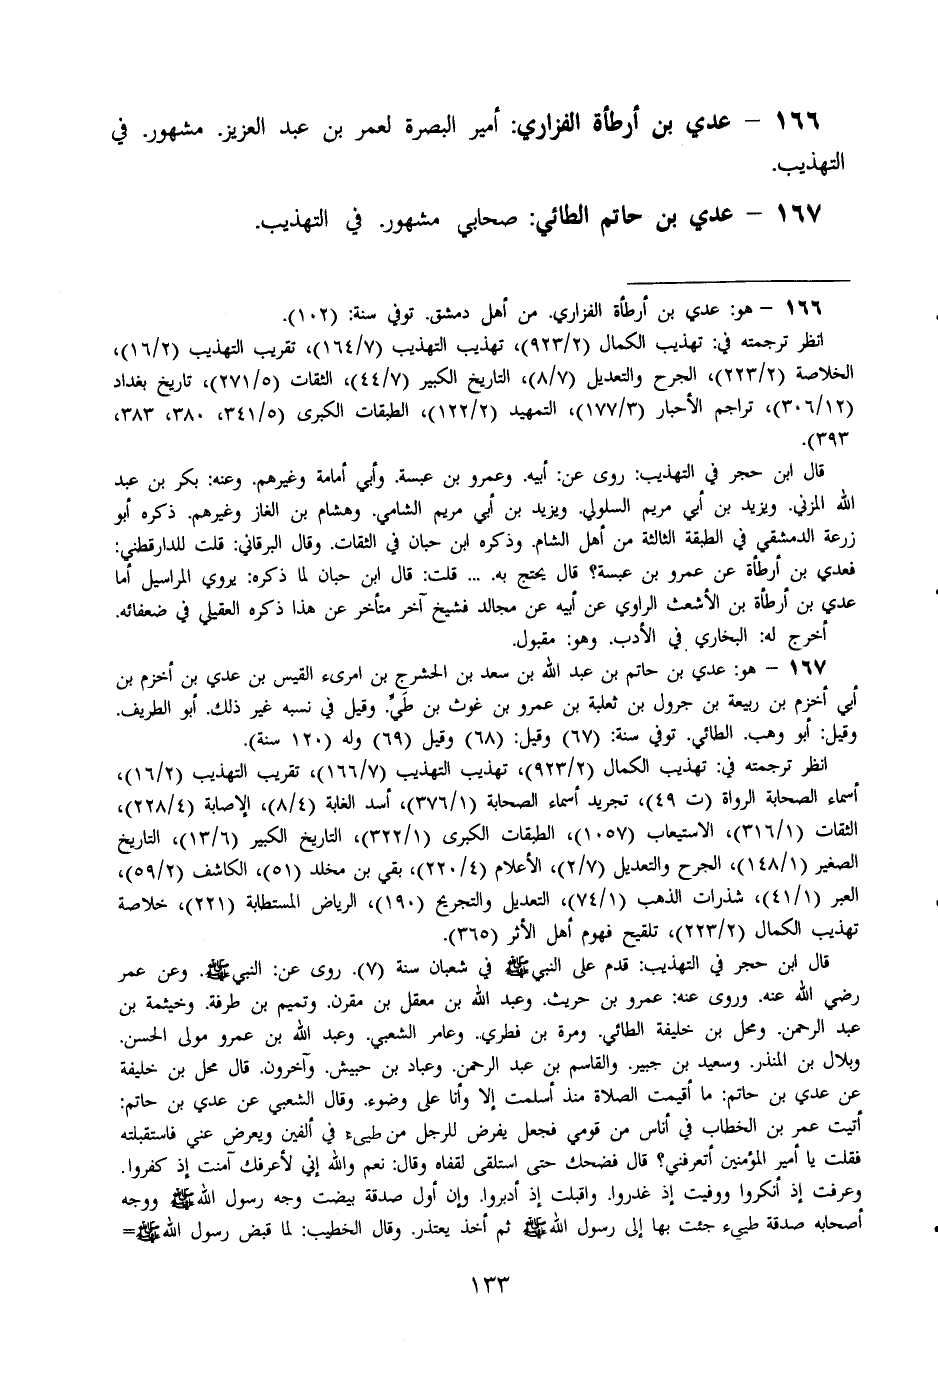 ١٦٦ – عدي بن أرطأة الفزاري: أمير البصرة لعمر بن عبد العزيز. مشهور. في
التهذيب.
١٦٧ – عدي بن حاتم الطائي: صحابي مشهور. في التهذيب.
١٦٦ – هو: عدي بن أرطأة الفزاري. من أهل دمشق. توفي سنة: (١٠٢).
انظر ترجمته في: تهذيب الكمال (٩٢٣/٢)، تهذيب التهذيب (١٦٤/٧)، تقريب التهذيب (١٦/٢)،
الخلاصة (٢٢٣/٢)، الجرح والتعديل (٨/٧)، التاريخ الكبير (٤٤/٧)، الثقات (٢٧١/٥)، تاريخ بغداد
(٣٠٦/١٢)، تراجم الأحبار (١٧٧/٣)، التمهيد (١٢٢/٢)، الطبقات الكبرى (٣٤١/٥، ٣٨٠، ٣٨٣،
٣٩٣).
قال ابن حجر في التهذيب: روى عن: أبيه. وعمرو بن عبسة. وأبي أمامة وغيرهم. وعنه: بكر بن عبد
الله المزني. ويزيد بن أبي مريم السلولي. ويزيد بن أبي مريم الشامي. وهشام بن الغاز وغيرهم. ذكره أبو
زرعة الدمشقي في الطبقة الثالثة من أهل الشام. وذكره ابن حبان في الثقات. وقال البرقاني: قلت للدارقطني:
فعدي بن أرطأة عن عمرو بن عبسة؟ قال يحتج به. ... قلت: قال ابن حبان لما ذكره: يروي المراسيل أما
عدي بن أرطأة بن الأشعث الراوي عن أبيه عن مجالد فشيخ آخر متأخر عن هذا ذكره العقيلي في ضعفائه.
أخرج له: البخاري في الأدب. وهو: مقبول.
١٦٧ – هو: عدي بن حاتم بن عبد الله بن سعد بن الحشرج بن امرىء القيس بن عدي بن أخزم بن
أبي أخزم بن ربيعة بن جرول بن ثعلبة بن عمرو بن غوث بن طَيِّ. وقيل في نسبه غير ذلك. أبو الطريف.
وقيل: أبو وهب. الطائي. توفي سنة: (٦٧) وقيل: (٦٨) وقيل (٦٩) وله (١٢٠ سنة).
انظر ترجمته في: تهذيب الكمال (٩٢٣/٢)، تهذيب التهذيب (١٦٦/٧)، تقريب التهذيب (١٦/٢)،
أسماء الصحابة الرواة (ت ٤٩)، تجريد أسماء الصحابة (٣٧٦/١)، أسد الغابة (٨/٤)، الإصابة (٢٢٨/٤)،
الثقات (٣١٦/١)، الاستيعاب (١٠٥٧)، الطبقات الكبرى (٣٢٢/١)، التاريخ الكبير (١٣/٦)، التاريخ
الصغير (١٤٨/١)، الجرح والتعديل (٢/٧)، الأعلام (٢٢٠/٤)، بقي بن مخلد (٥١)، الكاشف (٥٩/٢)،
العبر (٤١/١)، شذرات الذهب (٧٤/١)، التعديل والتجريح (١٩٠)، الرياض المستطابة (٢٢١)، خلاصة
تهذيب الكمال (٢٢٣/٢)، تلقيح فهوم أهل الأثر (٣٦٥).
قال ابن حجر في التهذيب: قدم على النبي ﷺ في شعبان سنة (٧). روى عن: النبي ﷺ. وعن عمر
رضي الله عنه. وروى عنه: عمرو بن حريث. وعبد الله بن معقل بن مقرن. وتميم بن طرفة. وخيثمة بن
عبد الرحمن. ومحل بن خليفة الطائي. ومرة بن فطري. وعامر الشعبي. وعبد الله بن عمرو مولى الحسن.
وبلال بن المنذر. وسعيد بن جبير. والقاسم بن عبد الرحمن. وعباد بن حبيش. وآخرون. قال محل بن خليفة
عن عدي بن حاتم: ما أقيمت الصلاة منذ أسلمت إلا وأنا على وضوء. وقال الشعبي عن عدي بن حاتم:
أتيت عمر بن الخطاب في أناس من قومي فجعل يفرض للرجل من طيىء في ألفين ويعرض عني فاستقبلته
فقلت يا أمير المؤمنين أتعرفني؟ قال فضحك حتى استلقى لقفاه وقال: نعم والله إني لأعرفك آمنت إذ كفروا.
وعرفت إذ أنكروا ووفيت إذ غدروا. واقبلت إذ أدبروا. وإن أول صدقة بيضت وجه رسول الله ﷺ ووجه
أصحابه صدقة طييء جئت بها إلى رسول الله ﷺ ثم أخذ يعتذر. وقال الخطيب: لما قبض رسول الله ﷺ=
١٣٣